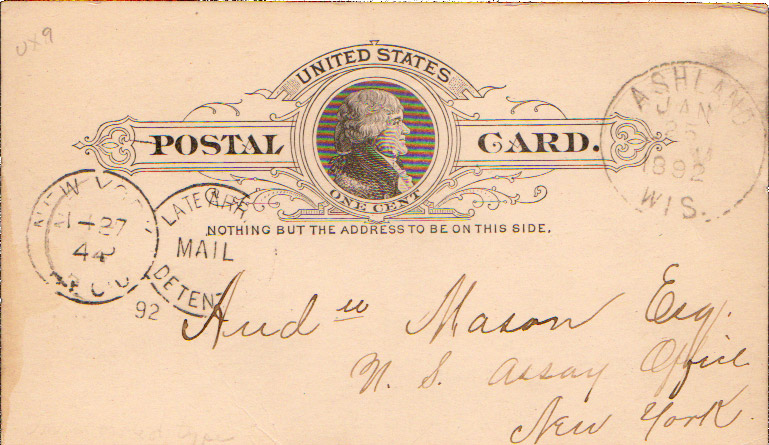 UX9
UNITED STATES
POSTAL CARD.
ONE CENT
NOTHING BUT THE ADDRESS TO BE ON THIS SIDE.
ASHLAND
JAN
1892
WIS.
NEW YORK
1-27
92
LATE
MAIL
DETEN
And ͭew Mason Esq.
U. S. Assay Office
New York.